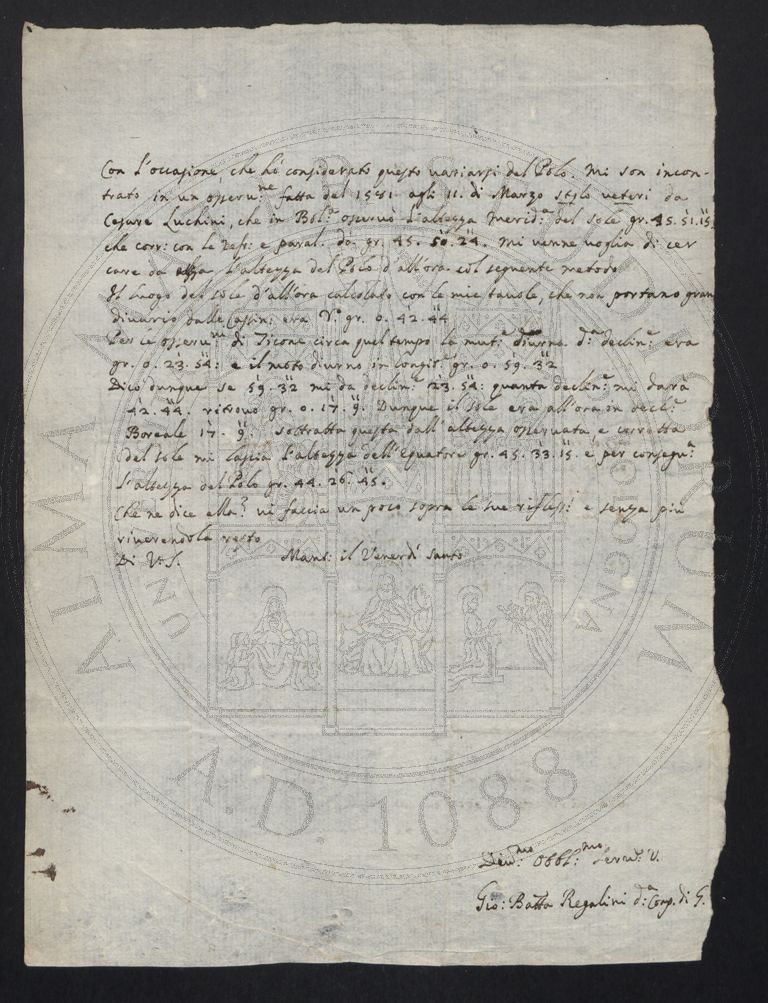 Con l'occasione, che hò considerato questo uariarsi del Polo. Mi son incon-
trato in un operu:ne fatta del 1581 agli 11. di Marzo stylo ueteri da
Cesare Luchini, che in Bol:a operuò l'altezza Merid:a del Sole gr. 45. 51. 15,
che corr: con le refr: e paral. dà gr. 45. 50. 24. mi uenne uoglia di cer
care da essa l'altezza del Polo d'all'ora col seguente metodo
Il luogo del Sole d'all'ora calcolato con le mie tauole, che non portano gran
diuario dalle Cassin: era V. gr. 0. 42. 44
Per le operu:ni di Ticone circa quel tempo la mut:e diurna d:a declin:e era
gr. 0. 23. 54: e il moto diurno in longit:e gr. 0. 59. 32
Dico dunque se 59. 32 mi dà declin:e 23. 54: quanta declin:e mi darà
42. 44. ritrouo gr. 0. 17. 9. Dunque il Sole era all'ora in decl:e
Boreale 17. 9. sottratta questa dall'altezza operuata e corretta
del Sole mi lascia l'altezza dell'Equatore gr. 45. 33. 15. e per consegu:a
l'altezza del Polo gr. 44. 26. 45.
Che ne dice ella? ui faccia un poco sopra le sue rifless:i e senza più
riuerendola resto
Di V.S. Mant: il Venerdì Santo
Deu:mo Obbl:mo Seru:e V.
Gio: Batta Regalini d:a Comp. di G.
ALMA MATER STUDIORUM
UNIVERSITÀ DI BOLOGNA
A.D. 1088